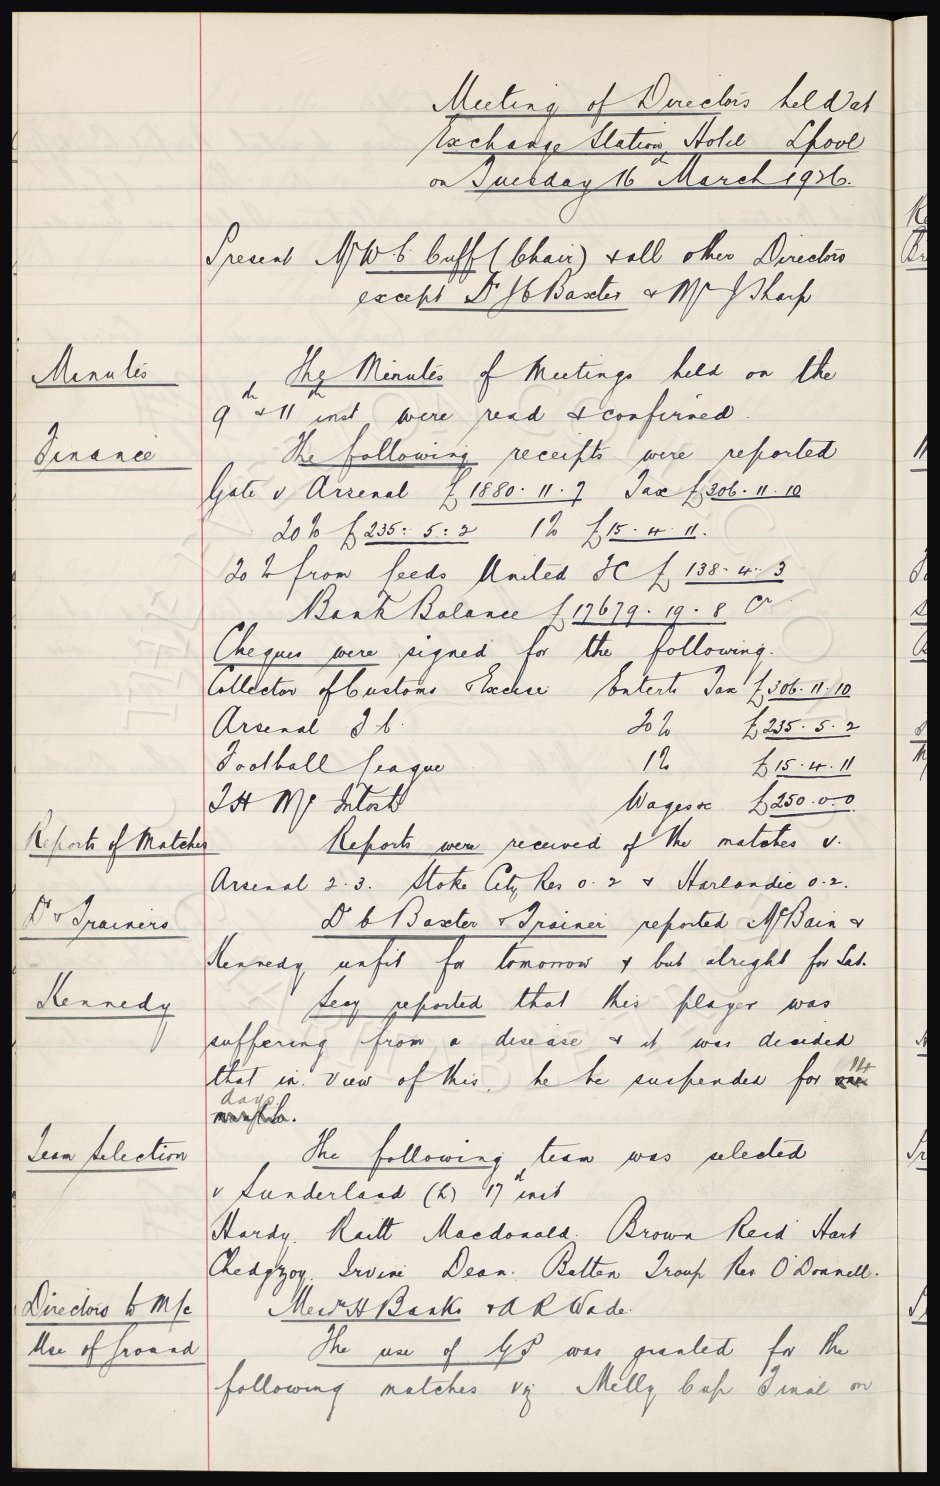 Meeting of Directors held at
Exchange Station Hotel Lpool
on Tuesday 16th March 1926.
Present Mr W C Cuff (Chair) & all other Directors
except Dr J C Baxter & Mr J Sharp
Minutes The Minutes of Meetings held on the
9th & 11th inst were read & confirmed.
Finance The following receipts were reported
Gate v Arsenal £1880.11.7 Tax £306.11.10
20% £235:5:2 1% £15.4.11.
20% from Leeds United FC £138.4.3
Bank Balance £17679.19.8 Cr
Cheques were signed for the following.
Collector of Customs & Excise Enterts Tax £306.11.10
Arsenal F.C. 20% £235.5.2
Football League 1% £15.4.11
T H McIntosh Wages &c £250.0.0
Reports of Matches Reports were received of the matches v.
Arsenal 2.3. Stoke City Res 0.2 & Harlandic 0.2.
Dr & Trainers Dr C Baxter & Trainer reported McBain &
Kennedy unfit for tomorrow & but alright for Sat.
Kennedy Secy reported that this player was
suffering from a disease & it was decided
that in view of this, he be suspended for one 14
month days.
Team Selection The following team was selected
v Sunderland (h) 17th inst
Hardy. Raitt Macdonald. Brown Reid Hart
Chedgzoy. Irvine Dean. Batten Troup Res O'Donnell.
Directors to M/c Messrs H Banks & A R Wade.
Use of Ground The use of GP was granted for the
following matches viz Melly Cup Final on